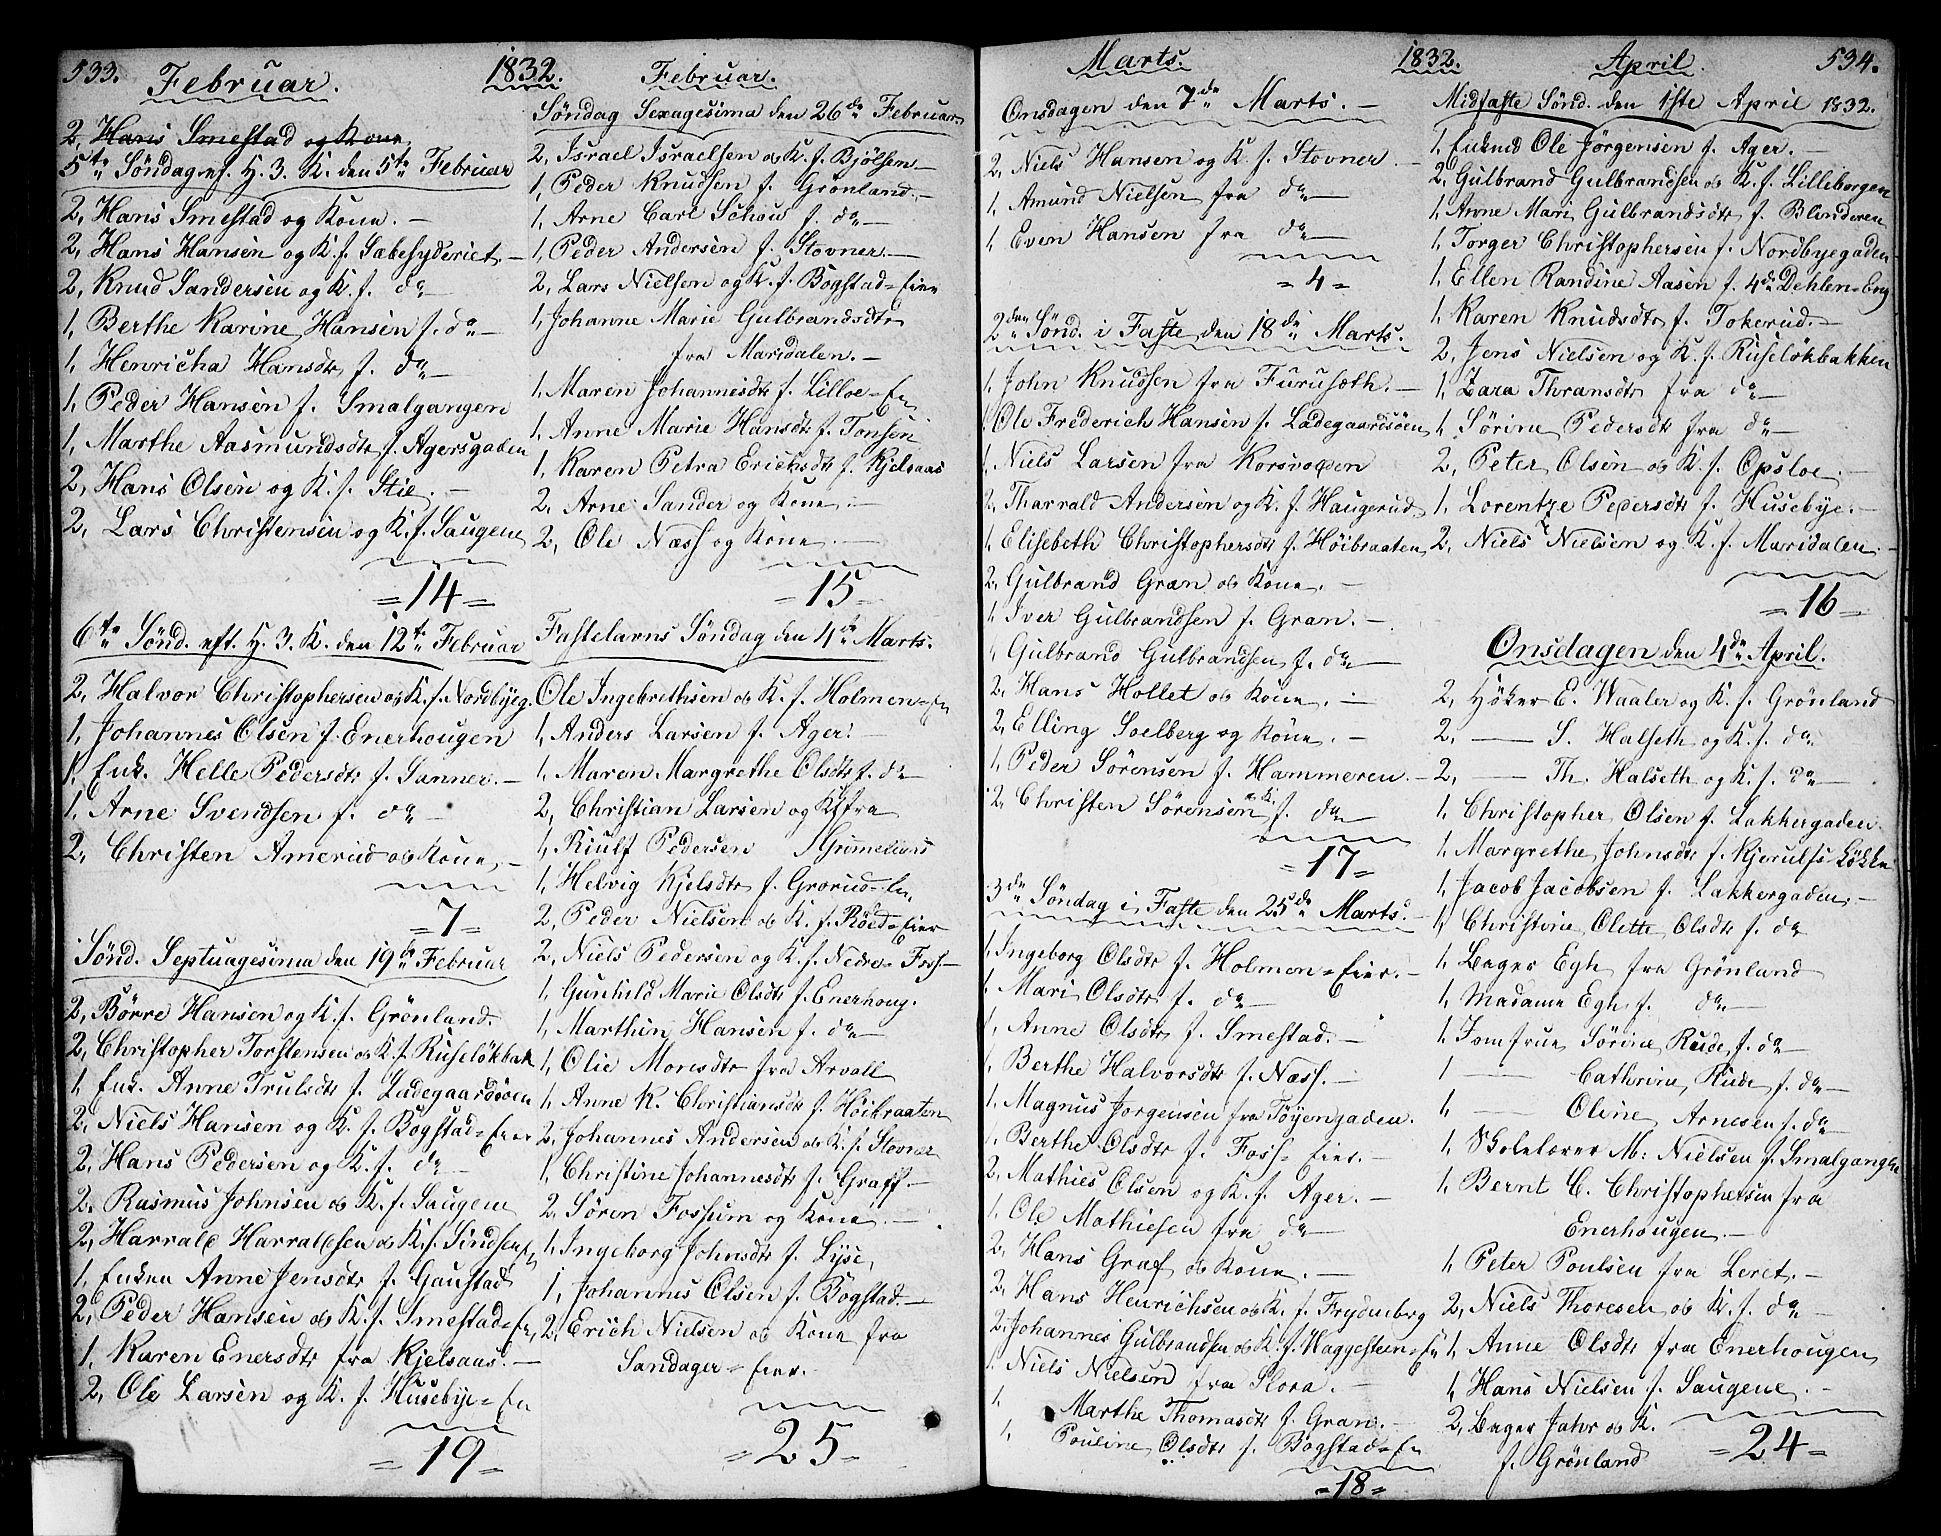 533. Februar. 1832. Februar.
2, Hans Smestad og Kone,
5te Søndag ef. H. 3. K. den 5te Februar
2, Hans Smestad og Kone. —
2, Hans Hansen og K. f. Sæbesyderiet, —
2, Knud Sandersen og K. f. do —
1, Berthe Karine Hansen f. do —
1, Henricha Hansdtr f. do —
1, Peder Hansen f. Smalgangen
1, Marthe Aasmundsdtr f. Agersgaden
2, Hans Olsen og K. f. Stie. —
2, Lars Christensen og K. f. Saugene
=14=
6te Sønd. eft. H. 3. K. den 12te Februar
2, Halvor Christophersen og K. f. Nordbyeg.
1, Johannes Olsen f. Enerhougen
1, Enk. Helle Pedersdtr f. Sanner. —
1, Arne Svendsen f. do —
2, Christen Amerud og Kone, —
=7=
Sønd. Septuagesima den 19de Februar
2, Børre Hansen og K. f. Grönland.
2, Christopher Torstensen og K. f. Ruseløkbak
1, Enk. Anne Trulsdtr f. Ladegaardsöen
2, Niels Hansen og K. f. Bogstad=Eier
2, Hans Pedersen og K. f. do —
2, Rasmus Johnsen og K. f. Saugene
2, Harrald Harraldsen og K. f. Sindsen
1, Enken Anne Jensdtr f. Gaustad
2, Peder Hansen og K. f. Smestad=Ei,
1, Karen Enersdtr fra Kjelsaas. —
2, Ole Larsen og K. f. Husebye=Ei
=19=
Søndag Sexagesima den 26de Februar
2, Israel Israelsen og K. f. Bjölsen —
1, Peder Knudsen f. Grönland. —
1, Arne Carl Schou f. do —
1, Peder Andersen f. Stovner. —
2, Lars Nielsen og K. f. Bogstad=Eier
1, Johanne Marie Gulbrandsdtr
fra Maridalen. —
1, Maren Johannesdtr f. Lilloe=Ei
1, Anne Marie Hansdtr f. Tonsen
1, Karen Petra Erichsdtr f. Kjelsaas
2, Arne Sander og Kone. —
2, Ole Næss og Kone. —
=15=
Fastelavns Søndag den 4de Marts.
Ole Ingebrethsen og K. f. Holmen=Ei
1, Anders Larsen f. Ager.
1, Maren Margrethe Olsdtr f. do
2, Christian Larsen og K. fra
1, Riulf Pedersen f. Grimelund
1, Helvig Kjelsdtr f. Grorud=Ei,
2, Peder Nielsen og K. f. Röed=Eier
2, Niels Pedersen og K. f. Nedre=Foss —
1, Gunhild Marie Olsdtr f. Enerhoug.
1, Marthin Hansen f. do —
1, Olie Monsdtr fra Arvall
1, Anne K. Christiansdtr f. Höibraaten
2, Johannes Andersen og K. f. Stovner
1, Christine Johannesdtr f. Graff. —
2, Sören Fossum og Kone. —
1, Ingeborg Johnsdtr f. Lyse,
1, Johannes Olsen f. Bogstad. —
2, Erich Nielsen og Kone fra
Sandager=Eier.
=25=
Marts. 1832. April. 534.
Onsdagen den 7de Marts. —
2, Niels Hansen og K. f. Stovner. —
1, Amund Nielsen fra do —
1, Even Hansen fra do —
=4=
2den Sønd. i Faste den 18de Marts.
1, John Knudsen fra Furuseth. —
1, Ole Frederich Hansen f. Ladegaardsöen
1, Niels Larsen fra Korsvolden
2, Tharrald Andersen og K. f. Haugerud
1, Elisebeth Christophersdtr f. Höibraaten
2, Gulbrand Gran og Kone. —
1, Iver Gulbrandsen f. Gran. —
1, Gulbrand Gulbrandsen f. do —
2, Hans Hollet og Kone. —
2, Elling Soelberg og Kone. —
1, Peder Sörensen f. Hammeren. —
2, Christen Sörensen og K. f. do —
=17=
3de Søndag i Faste den 25de Marts. —
1, Ingeborg Olsdtr f. Holmen=Eier. —
1, Mari Olsdtr f. do —
1, Anne Olsdtr f. Smestad. —
1, Berthe Halvorsdtr f. Næss. —
1, Magnus Jorgensen fra Töyengaden.
1, Berthe Olsdtr f. Foss=Eier. —
2, Mathies Olsen og K. f. Ager. —
1, Ole Mathiesen fra do —
2, Hans Graf og Kone. —
2, Hans Henrichsen og K. f. Frydenberg
2, Johannes Gulbrandsen og K. f. Haggesteen=Ei
1, Niels Nielsen fra Flora. —
1, Marthe Thomasdtr f. Gran. —
1, Pouline Olsdtr f. Bogstad=Ei
=18=
Midfaste Sönd. den 1ste April 1832.
1, Enkemd Ole Jörgensen f. Ager. —
2, Gulbrand Gulbrandsen og K. f. Lilleborgen
1, Anne Mari Gulbrandsdtr f. Blinderen
1, Torger Christophersen f. Nordbyegaden
1, Ellen Randine Aasen f. 4de Dehlen=Eng
1, Karen Knudsdtr f. Tokerud. —
2, Jens Nielsen og K. f. Ruseløkbakken
1, Zara Thransdtr fra do —
1, Sörine Pedersdtr fra do —
2, Peter Olsen og K. f. Opsloe. —
1, Lorentze Pedersdtr f. Husebye. —
2, Niels Nielsen og K. f. Maridalen. —
=16=
Onsdagen den 4de April.
2, Höker E. Waaler og K. f. Grönland
2, — S. Halseth og K. f. do
2, — Th. Halseth og K. f. do —
1, Christopher Olsen f. Lakkergaden.
1, Margrethe Johnsdtr f. Kjerulfs Lökke
1, Jacob Jacobsen f. Lakkergaden. —
1, Christine Olette Olsdtr f. do
1, Bager Egh fra Grönland
1, Madame Egh f. do —
1, Jomfrue Sörine Rude f. do —
1 — Cathrine Rude f. do —
1, — Oline Arnesen f. do —
1, Skolelærer M. Nielsen f. Smalgangen
1, Bernt C. Christophersen fra
Enerhougen. —
1, Peter Poulsen fra Leret. —
2, Niels Thoresen og K. f. do —
1, Anne Olsdtr fra Enerhougen
1, Hans Nielsen f. Saugene. —
2, Bager Jahr og K.
f. Grönland
=24=